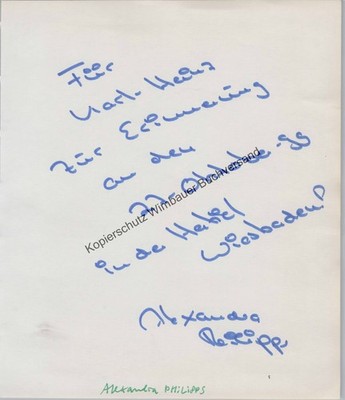 Für
Karl-Heinz
zur Erinnerung
an den
Oktober 99
in der
Wiesbaden!
Alexandra
Philipps
Kopierschutz Wimbauer Buchversand
Alexandra PHILIPPS